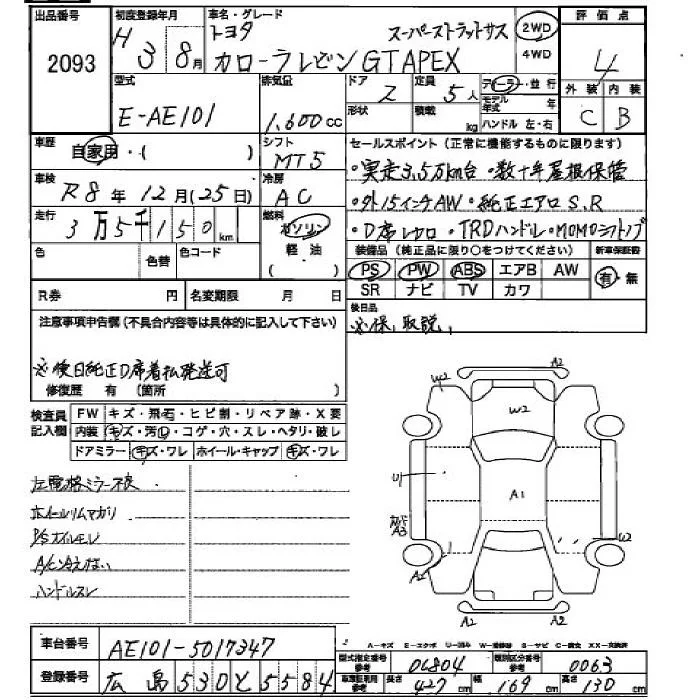 出品番号 初度登録年月 車名・グレード 評価点
2093 H 3 8月 トヨタ スーパーストラットサス 2WD 4WD 4
カローラレビン GT APEX
型式 排気量 ドア 定員 ディーラー・並行 外装 内装
E-AE101 1,600cc 2 5人 モデル年式 年 C B
形状 積載 kg ハンドル 左・右
車歴 自家用・( ) シフト MT5
セールスポイント(正常に機能するものに限ります)
・実走3.5万km台・数十年屋根保管
車検 R8年12月(25日) 冷房 AC
・外15インチAW・純正エアロ S,R
走行 3万5千150km 燃料 ガソリン 軽油 ( )
・D席レカロ・TRDハンドル・MOMOシフトノブ
色 色替 色コード
装備品(純正品に限り○をつけてください) 新車保証書
PS PW ABS エアB AW 有・無
SR ナビ TV カワ
R券 円 名変期限 月 日
後日品
※保,取説,
注意事項申告欄(不具合内容等は具体的に記入して下さい)
※後日純正D席着払発送可
修復歴 有(箇所 )
検査員記入欄 FW キズ・飛石・ヒビ割・リペア跡・X要
内装 キズ・汚レ・コゲ・穴・スレ・ヘタリ・破レ
ドアミラー キズ・ワレ ホイール・キャップ キズ・ワレ
左電格ミラー不良
ホイールリムマガリ
P/Sオイルモレ
A/C冷えない
ハンドルスレ
A2
W2
W2
U1
A1
A3
W2
A2
A2
車台番号 AE101-5017347
A-キズ E-エクボ U-凹み W-補修跡 S-サビ C-腐食 XX-交換済
登録番号 広島530と5584
型式指定番号 参考 06804 類別区分番号 参考 0063
車庫証明用 参考 長さ 427cm 幅 169cm 高さ 130cm